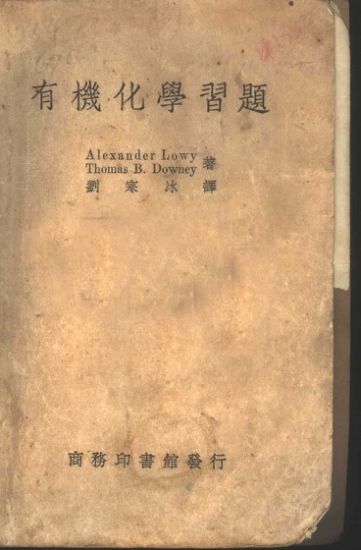 有機化學習題
Alexander Lowy
Thomas B. Downey 著
劉寒冰 譯
商務印書館發行